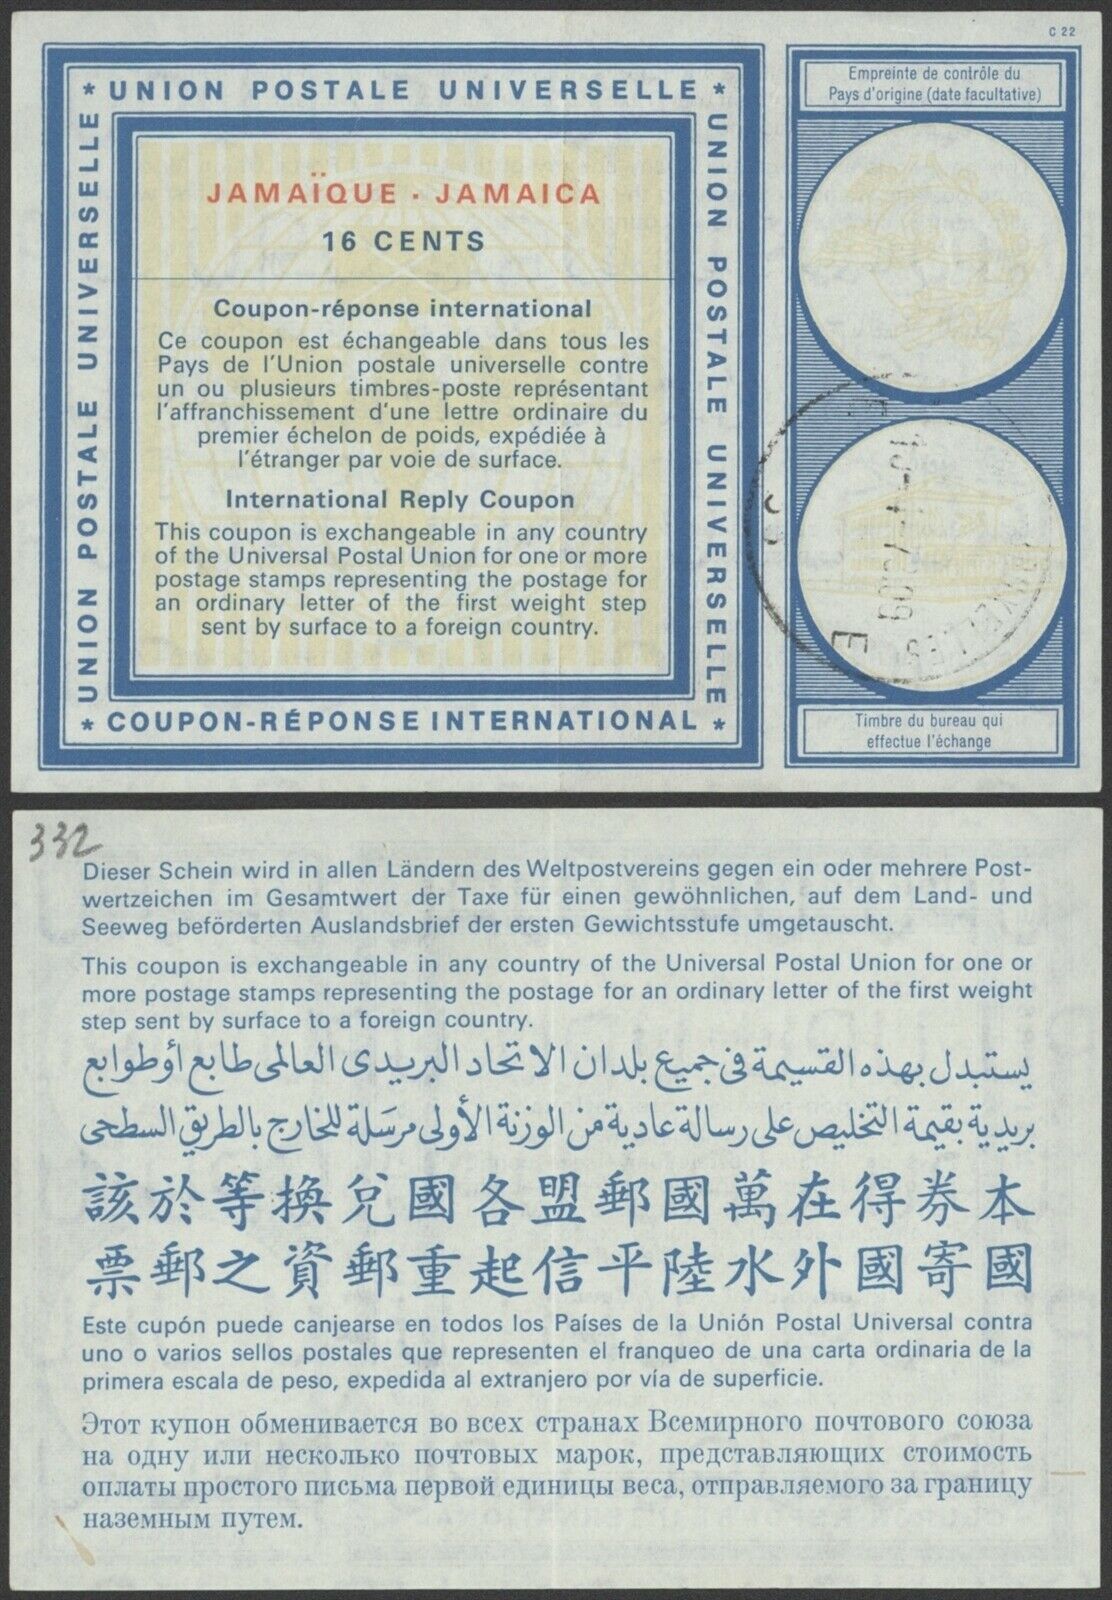 C 22
* UNION POSTALE UNIVERSELLE *
UNION POSTALE UNIVERSELLE
UNION POSTALE UNIVERSELLE
JAMAÏQUE · JAMAICA
16 CENTS
Coupon-réponse international
Ce coupon est échangeable dans tous les
Pays de l'Union postale universelle contre
un ou plusieurs timbres-poste représentant
l'affranchissement d'une lettre ordinaire du
premier échelon de poids, expédiée à
l'étranger par voie de surface.
International Reply Coupon
This coupon is exchangeable in any country
of the Universal Postal Union for one or more
postage stamps representing the postage for
an ordinary letter of the first weight step
sent by surface to a foreign country.
* COUPON-RÉPONSE INTERNATIONAL *
Empreinte de contrôle du
Pays d'origine (date facultative)
E
Timbre du bureau qui
effectue l'échange
332
Dieser Schein wird in allen Ländern des Weltpostvereins gegen ein oder mehrere Post-
wertzeichen im Gesamtwert der Taxe für einen gewöhnlichen, auf dem Land- und
Seeweg beförderten Auslandsbrief der ersten Gewichtsstufe umgetauscht.
This coupon is exchangeable in any country of the Universal Postal Union for one or
more postage stamps representing the postage for an ordinary letter of the first weight
step sent by surface to a foreign country.
يستبدل بهذه القسيمة فى جميع بلدان الاتحاد البريدى العالمى طابع أو طوابع
بريدية بقيمة التخليص على رسالة عادية من الوزنة الأولى مرسَلة للخارج بالطريق السطحى
該於等換兌國各盟郵國萬在得券本
票郵之資郵重起信平陸水外國寄國
Este cupón puede canjearse en todos los Países de la Unión Postal Universal contra
uno o varios sellos postales que representen el franqueo de una carta ordinaria de la
primera escala de peso, expedida al extranjero por vía de superficie.
Этот купон обменивается во всех странах Всемирного почтового союза
на одну или несколько почтовых марок, представляющих стоимость
оплаты простого письма первой единицы веса, отправляемого за границу
наземным путем.